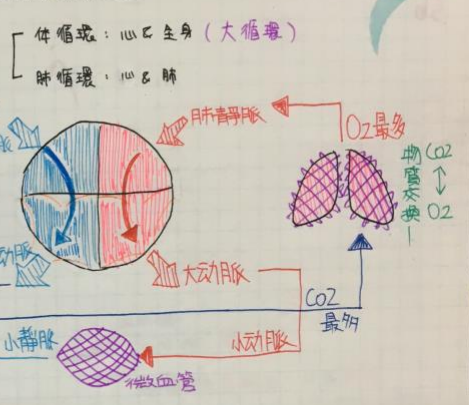 体循環：心 & 全身（大循環）
肺循環：心 & 肺
肺靜脈
O2最多
物質交換！
CO2
O2
脈
动脈
大动脈
CO2
最多
小靜脈
小动脈
微血管